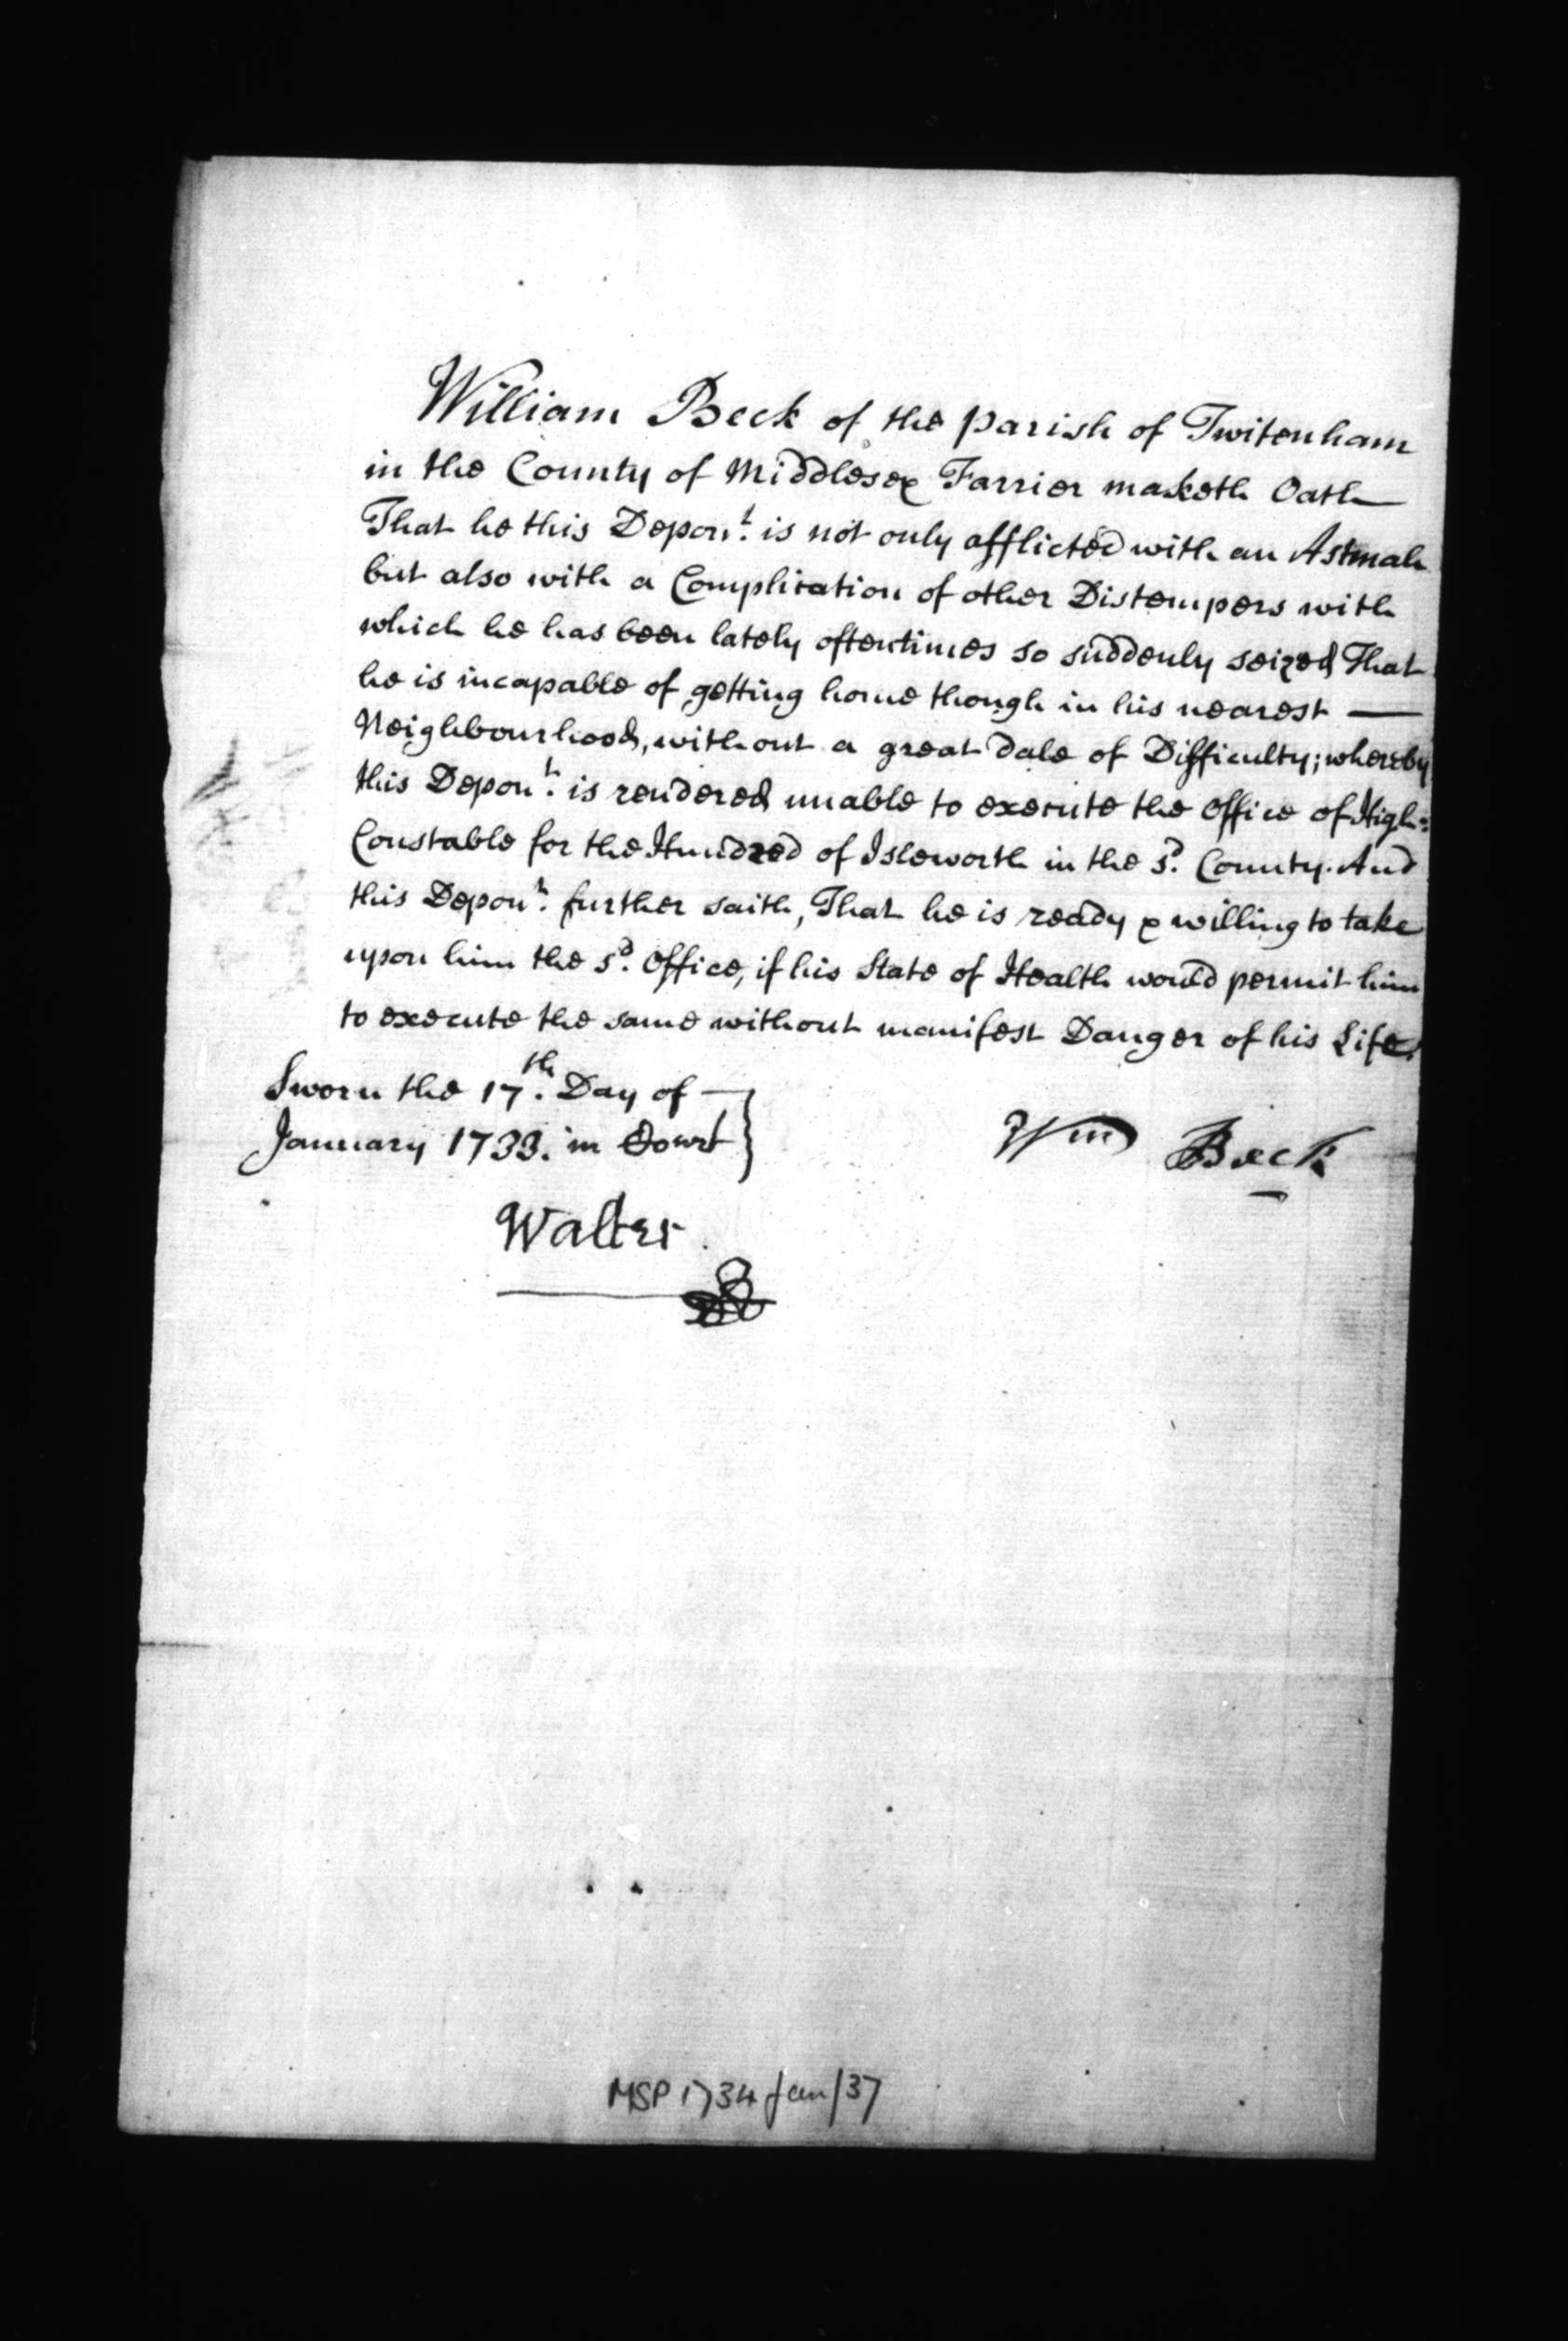 William Beck of the parish of Twitenham
in the County of Middlesex Farrier maketh Oath
That he this Depont. is not only afflicted with an Astmah
but also with a Complication of other Distempers with
which he has been lately oftentimes so suddenly seized That
he is incapable of getting home though in his nearest —
Neighbourhood, without a great dale of Difficulty; whereby
this Depont. is rendered unable to execute the Office of High=
Constable for the Hundred of Isleworth in the sd. County. And
this Depont. further saith, That he is ready & willing to take
upon him the sd. Office, if his State of Health would permit him
to execute the same without manifest Danger of his Life.
Sworn the 17th. Day of —
January 1733. in Court
Wm Beck
Walter
MSP 1734 Jan/37